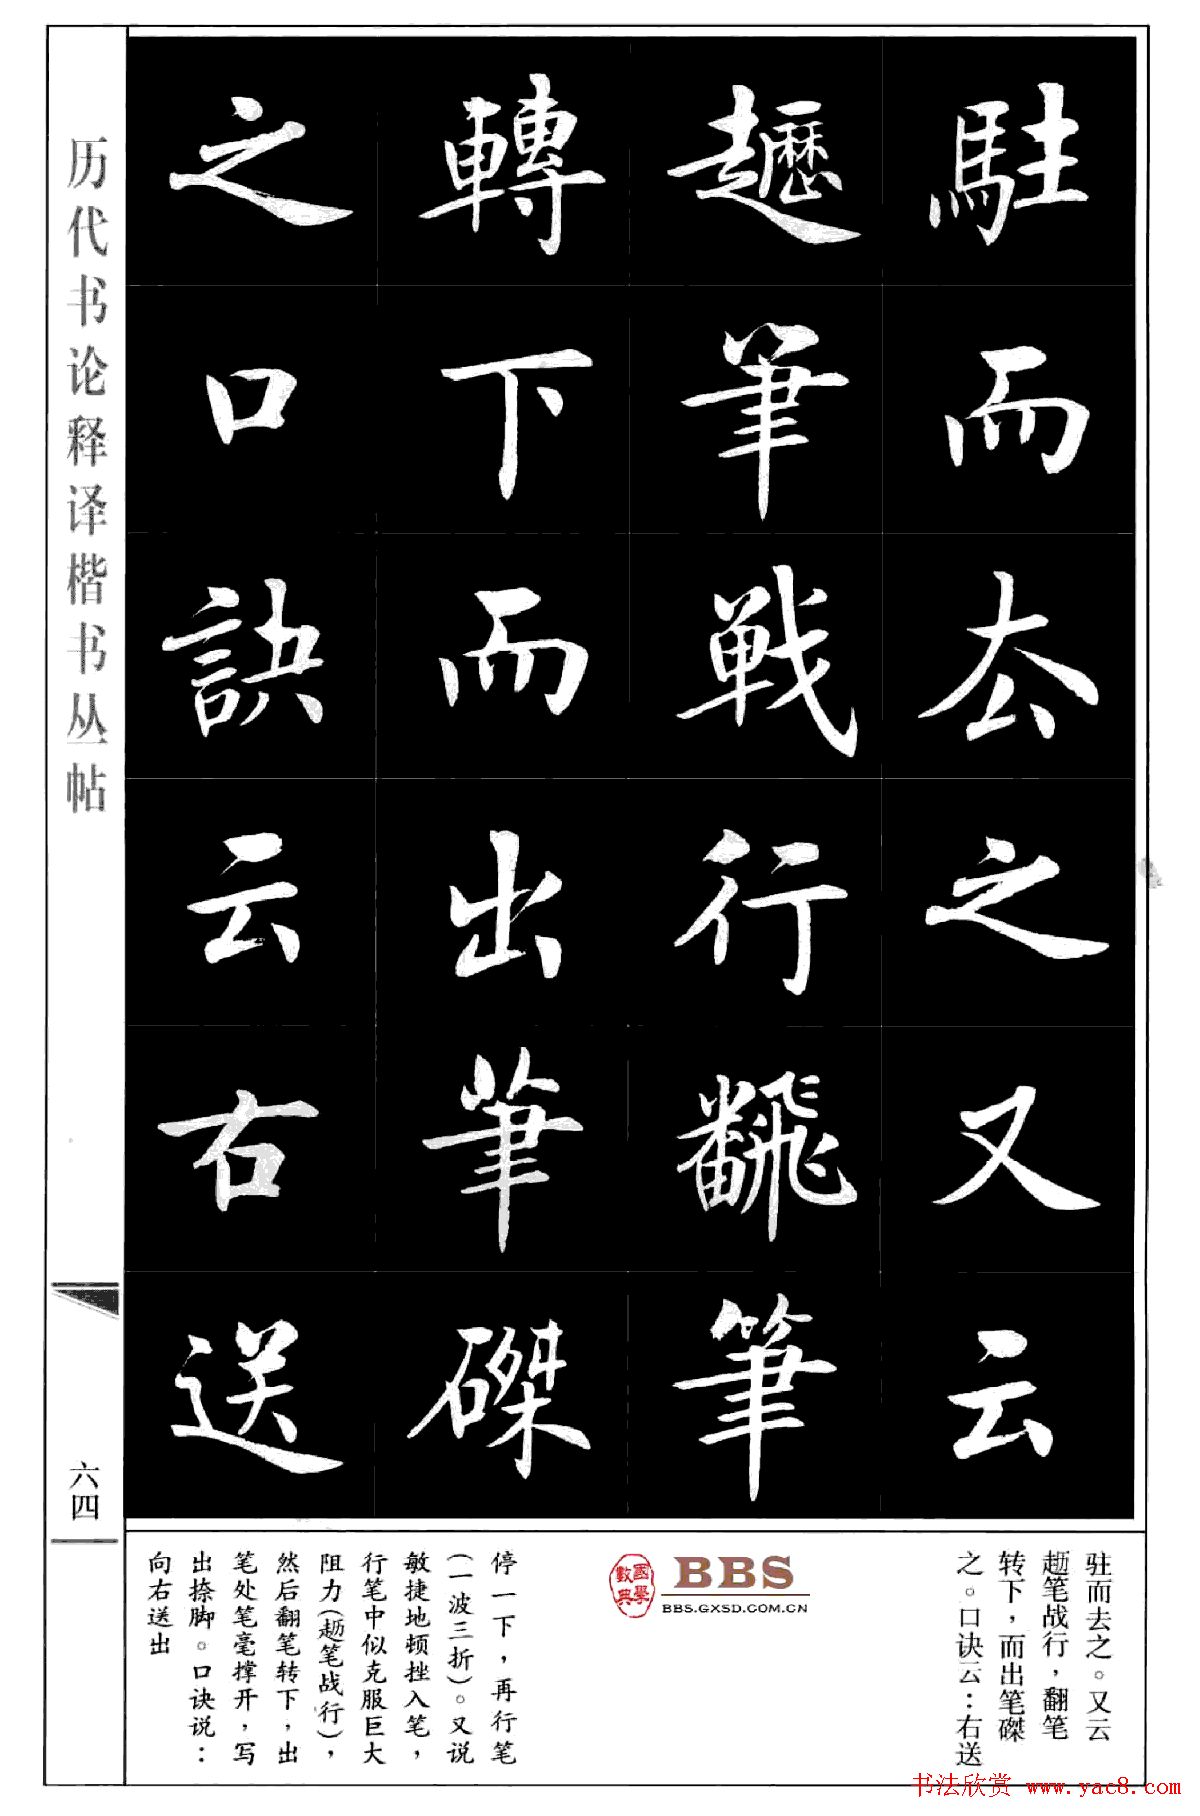 駐而去之又云
趯筆戰行飜筆
轉下而出筆磔
之口訣云右送
历代书论释译楷书丛帖
六四
驻而去之。又云
趯笔战行，翻笔
转下，而出笔磔
之。口诀云：右送
國學數典
BBS
BBS.GXSD.COM.CN
停一下，再行笔
（一波三折）。又说
敏捷地顿挫入笔，
行笔中似克服巨大
阻力（趯笔战行），
然后翻笔转下，出
笔处笔毫撑开，写
出捺脚。口诀说：
向右送出
书法欣赏 www.yac8.com